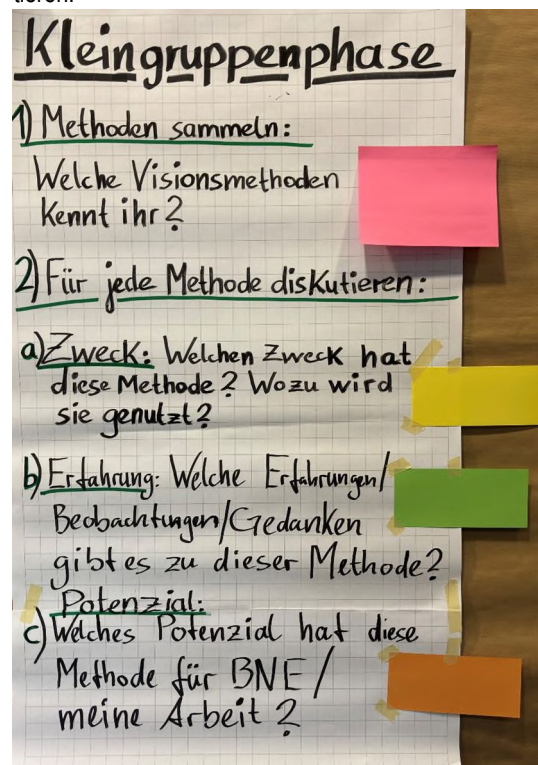 Kleingruppenphase
1) Methoden sammeln:
Welche Visionsmethoden
kennt ihr?
2) Für jede Methode diskutieren:
a) Zweck: Welchen Zweck hat
diese Methode? Wozu wird
sie genutzt?
b) Erfahrung: Welche Erfahrungen/
Beobachtungen/Gedanken
gibt es zu dieser Methode?
Potenzial:
c) Welches Potenzial hat diese
Methode für BNE/
meine Arbeit?